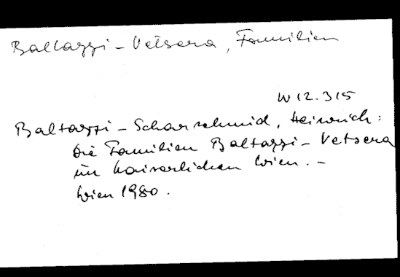 Baltazzi-Vetsera, Familien
W 12.315
Baltazzi-Scharschmid, Heinrich:
Die Familien Baltazzi-Vetsera
im kaiserlichen Wien. -
Wien 1980.